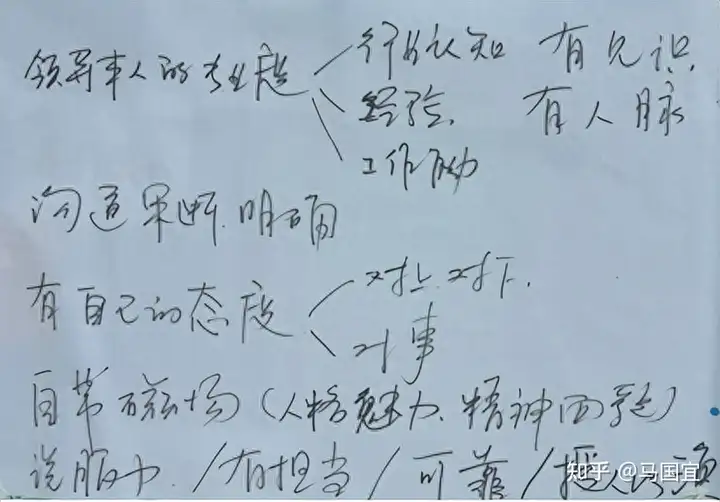 领导本人的专业度 行业认知 有见识
经验 有人脉
工作
沟通果断、明确
有自己的态度 对上、对下、
对事
自带磁场(人格魅力、精神面貌)
说服力、/有担当/可靠/
知乎 @马国宜